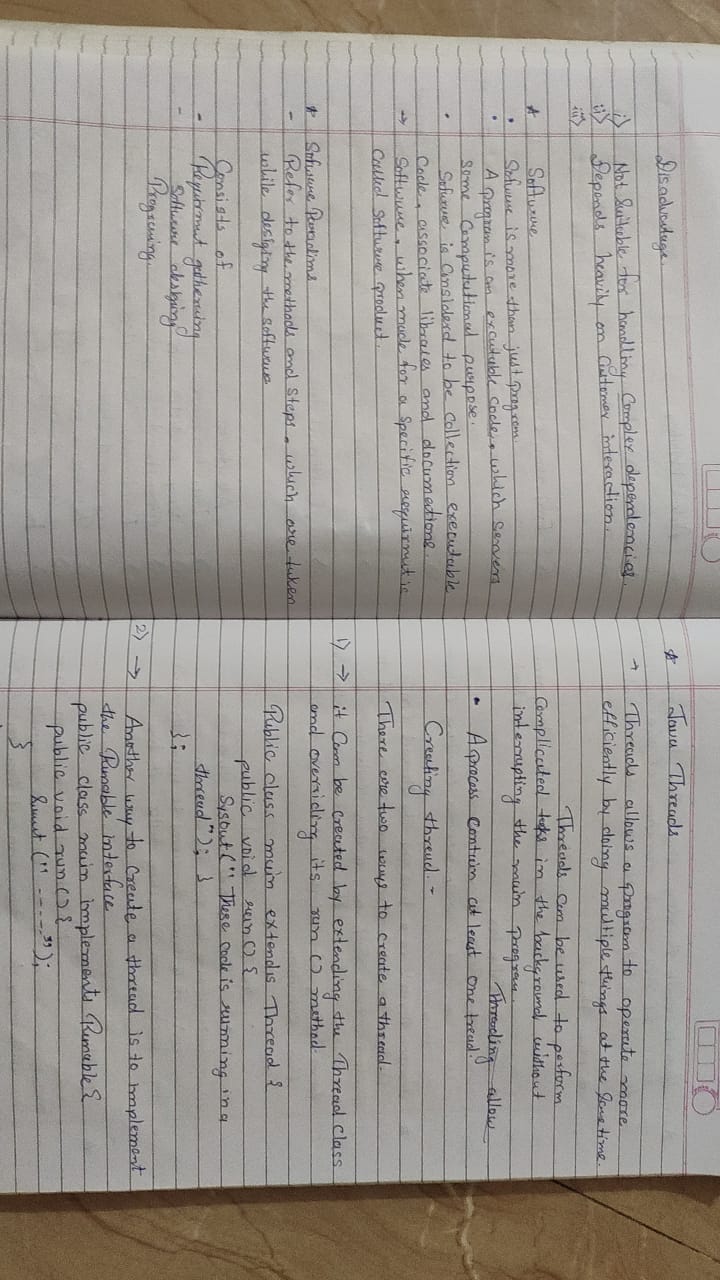 Disadvantage.
i> Not Suitable for handling Complex dependencies.
ii> Depends heavily on Customer interaction.
iii>
* Software
• Sofwore is more than just program.
• A program is an excutable code, which servers
some Computational purpose.
• Sofware is Considerd to be collection executable
Code, associate libraries and documentions.
→ Software, when made for a specific requirmnt is
Called Software product.
* Software Paradims
- Refer to the methods and steps, which are taken
while desiging the software
Consists of
- Requirmnt gatherning
- Software desging
Programing.
* Java Threads
→ Threads allows a program to operate more
efficiently by doing multiple things at the Same time.
Threads can be used to perform
Complicated in the background without
interrupting the main program.
Threading allow
• A process contain at least one tread.
Creating thread. -
There are two ways to create a thread.
1) → it Can be created by extending the Thread class
and overriding its run () method.
Public class main extends Thread {
public void run () {
Sysout (" These code is running in a
thread"); }
};
2) → Another way to Create a thread is to implement
the Runable interface
public class main implements Runable {
public void run () {
(" -----");
}